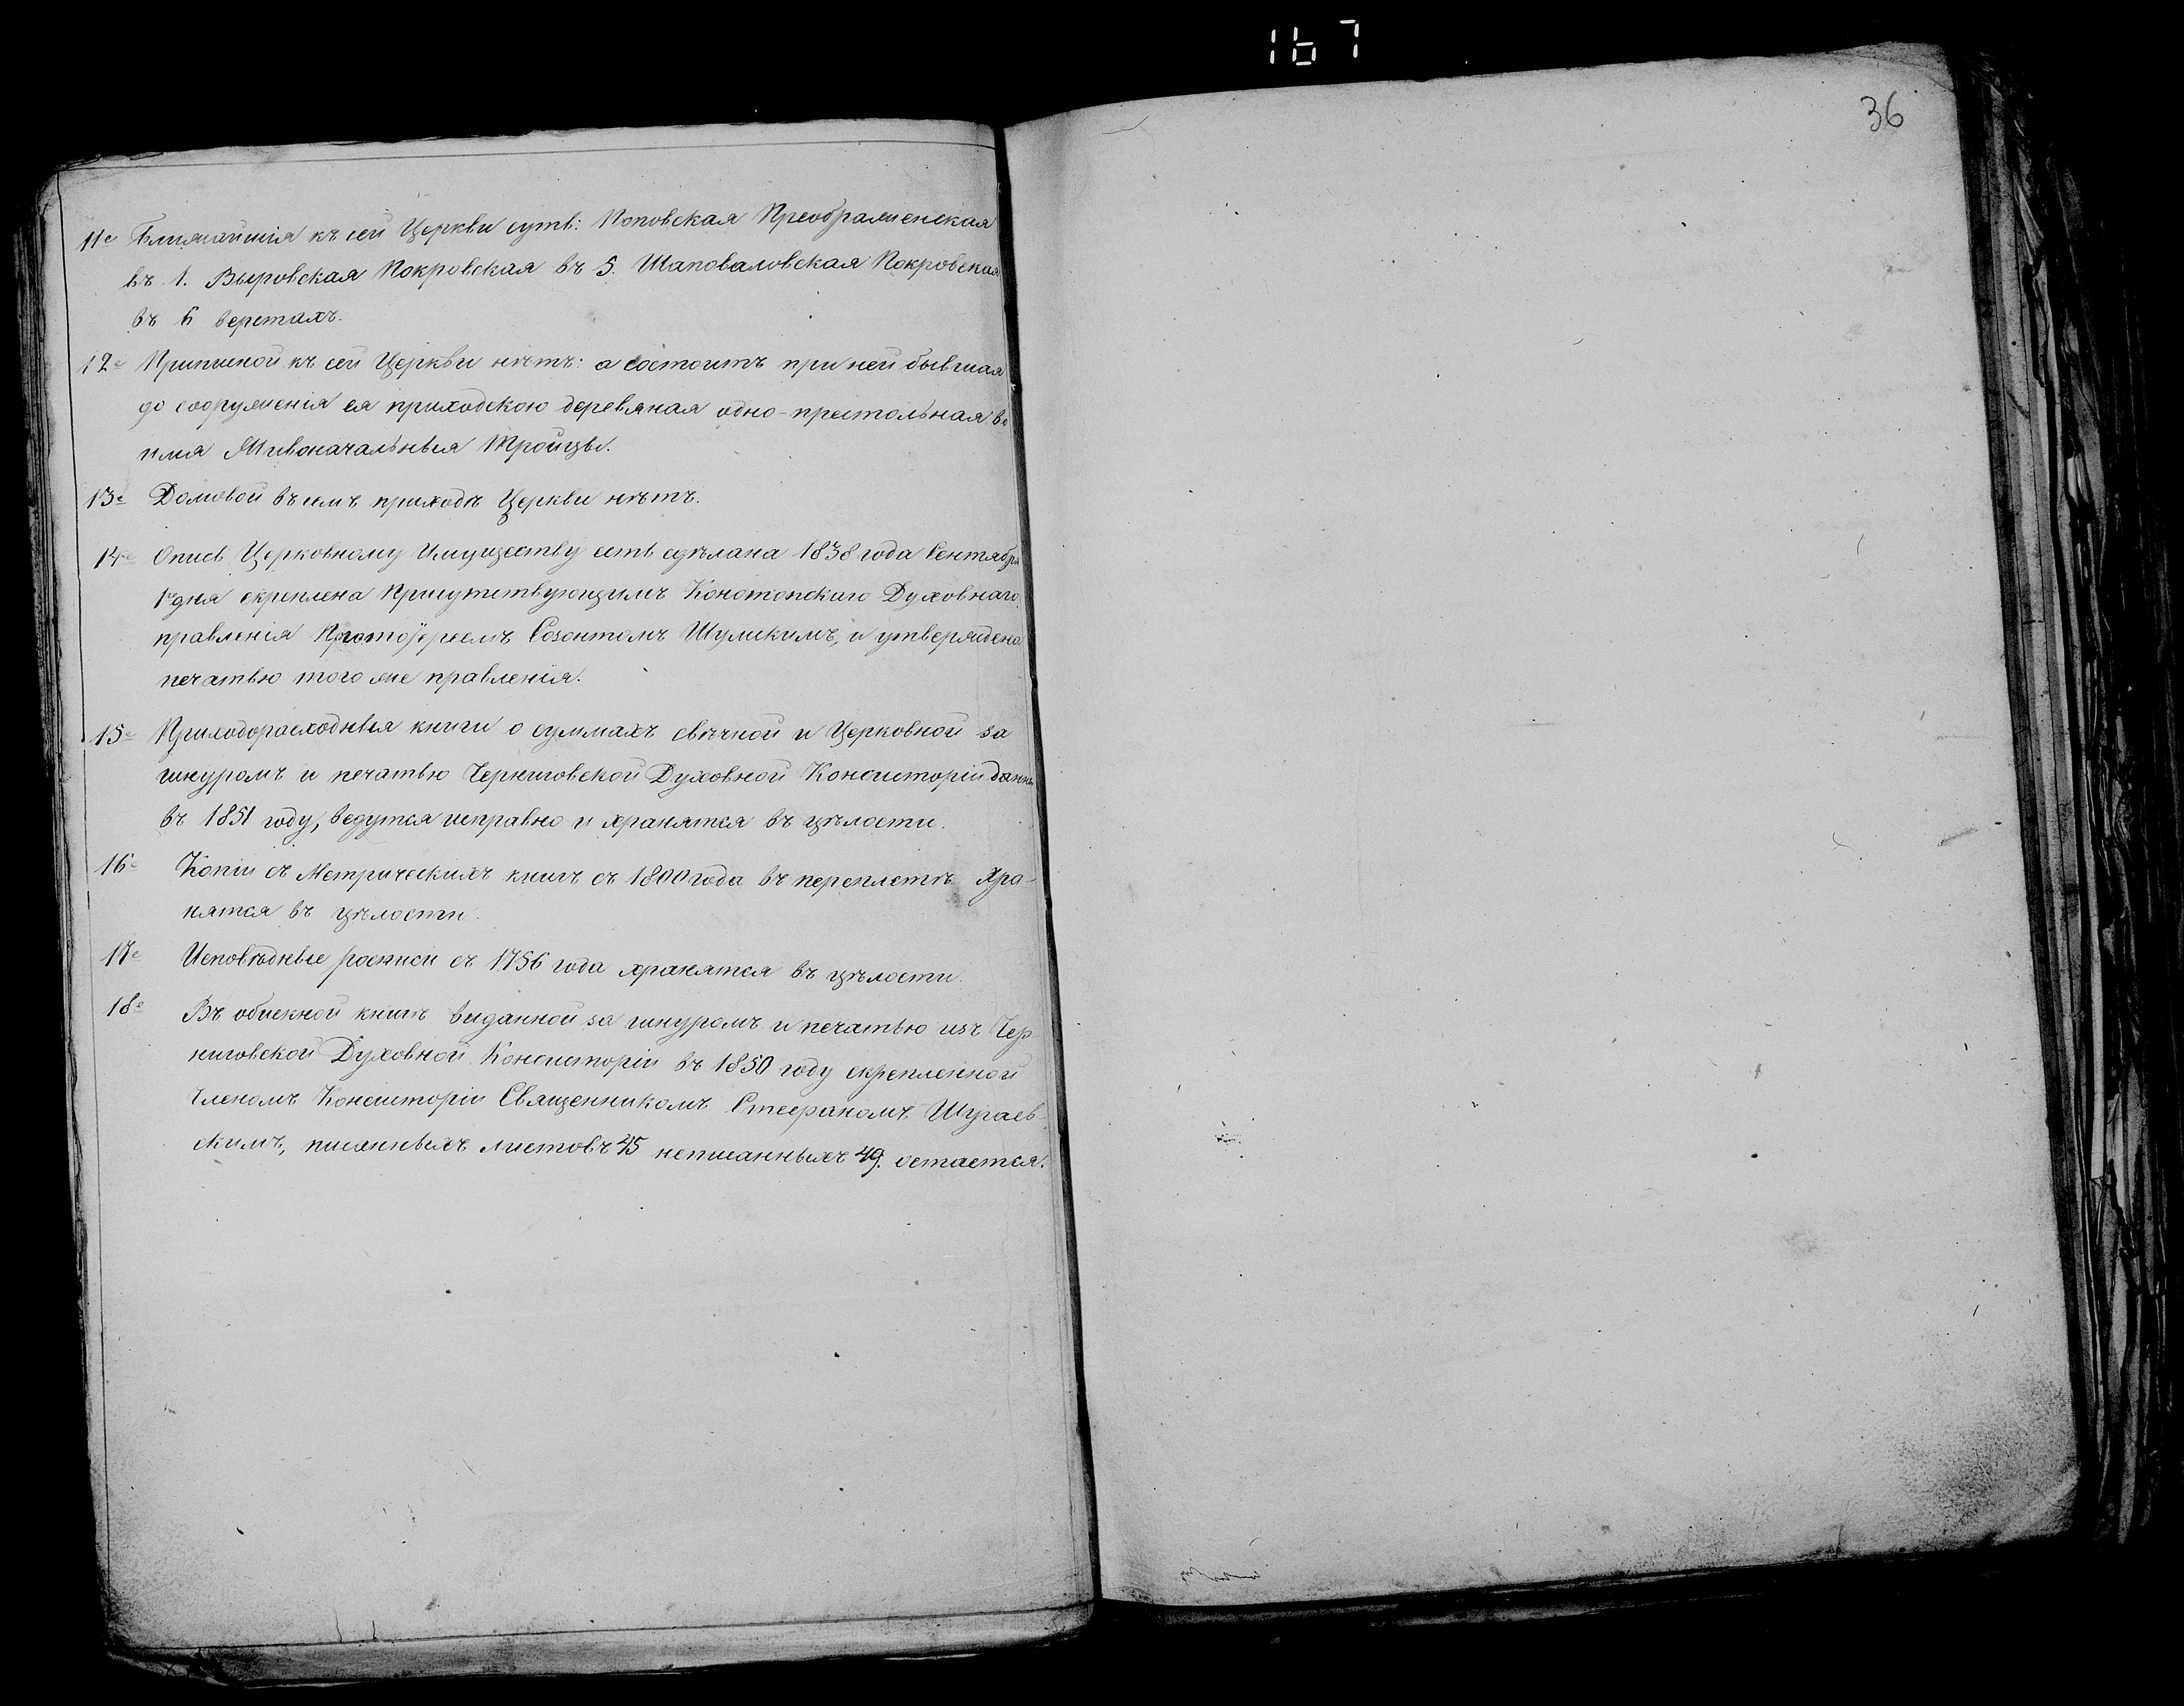 167
36
11е Ближайшія къ сей Церкви суть: Поповская Преображенская
въ 1. Выровская Покровская въ 5. Шаповаловская Покровская
въ 6 верстахъ.
12е Приписной къ сей Церкви нѣтъ: а состоитъ при ней бывшая
до сооруженія ея приходскою деревяная одно-престольная во
имя Живоначальныя Тройцы.
13е Домовой въ семъ приходѣ Церкви нѣтъ.
14е Опись Церковному Имуществу есть сдѣлана 1838 года Сентября
1го дня скреплена Присутствующимъ Конотопскаго Духовнаго
правленія Протоіереемъ Созонтомъ Шумскимъ, и утверждена
печатью того же правленія.
15е Приходорасходныя книги о суммахъ свѣчной и Церковной за
шнуромъ и печатью Черниговской Духовной Консисторіи данны
въ 1851 году, ведутся исправно и хранятся въ цѣлости.
16е Копіи съ Метрическихъ книгъ съ 1800 года въ переплетѣ Хра-
нятся въ цѣлости.
17е Исповѣдные росписи съ 1756 года хранятся въ цѣлости.
18е Въ обыскной книгѣ виданной за шнуромъ и печатью изъ Чер
ниговской Духовной Консисторіи въ 1850 году скрепленной
Членомъ Консисторіи Священникомъ Стефаномъ Шугаев-
скимъ, писанныхъ листовъ 45 неписанныхъ 49. остается.